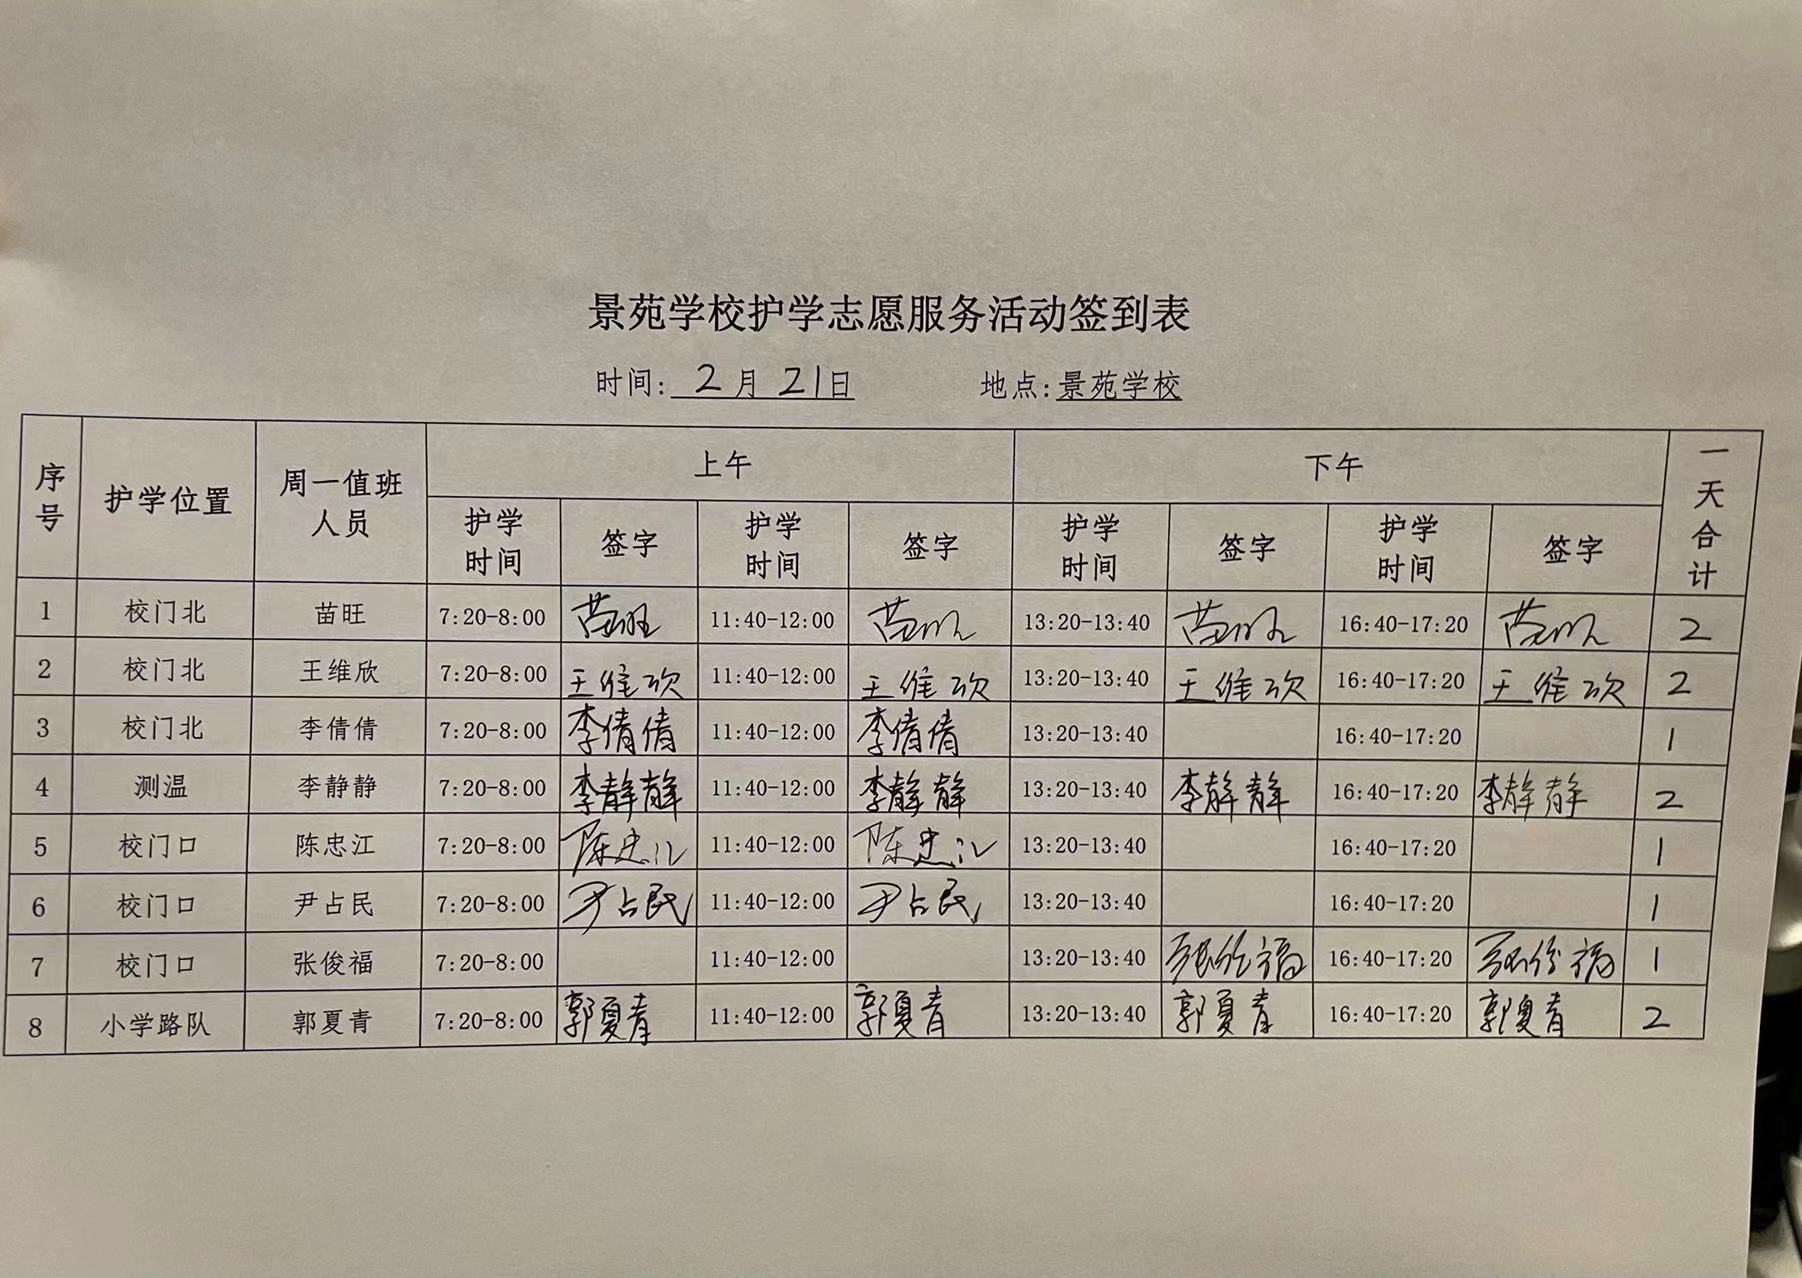 景苑学校护学志愿服务活动签到表
时间: 2月21日 地点:景苑学校
序号 护学位置 周一值班人员 上午 下午 一天合计
护学时间 签字 护学时间 签字 护学时间 签字 护学时间 签字
1 校门北 苗旺 7:20-8:00 苗旺 11:40-12:00 苗旺 13:20-13:40 苗旺 16:40-17:20 苗旺 2
2 校门北 王维欣 7:20-8:00 王维欣 11:40-12:00 王维欣 13:20-13:40 王维欣 16:40-17:20 王维欣 2
3 校门北 李倩倩 7:20-8:00 李倩倩 11:40-12:00 李倩倩 13:20-13:40 16:40-17:20 1
4 测温 李静静 7:20-8:00 李静静 11:40-12:00 李静静 13:20-13:40 李静静 16:40-17:20 李静静 2
5 校门口 陈忠江 7:20-8:00 陈忠江 11:40-12:00 陈忠江 13:20-13:40 16:40-17:20 1
6 校门口 尹占民 7:20-8:00 尹占民 11:40-12:00 尹占民 13:20-13:40 16:40-17:20 1
7 校门口 张俊福 7:20-8:00 11:40-12:00 13:20-13:40 张俊福 16:40-17:20 张俊福 1
8 小学路队 郭夏青 7:20-8:00 郭夏青 11:40-12:00 郭夏青 13:20-13:40 郭夏青 16:40-17:20 郭夏青 2